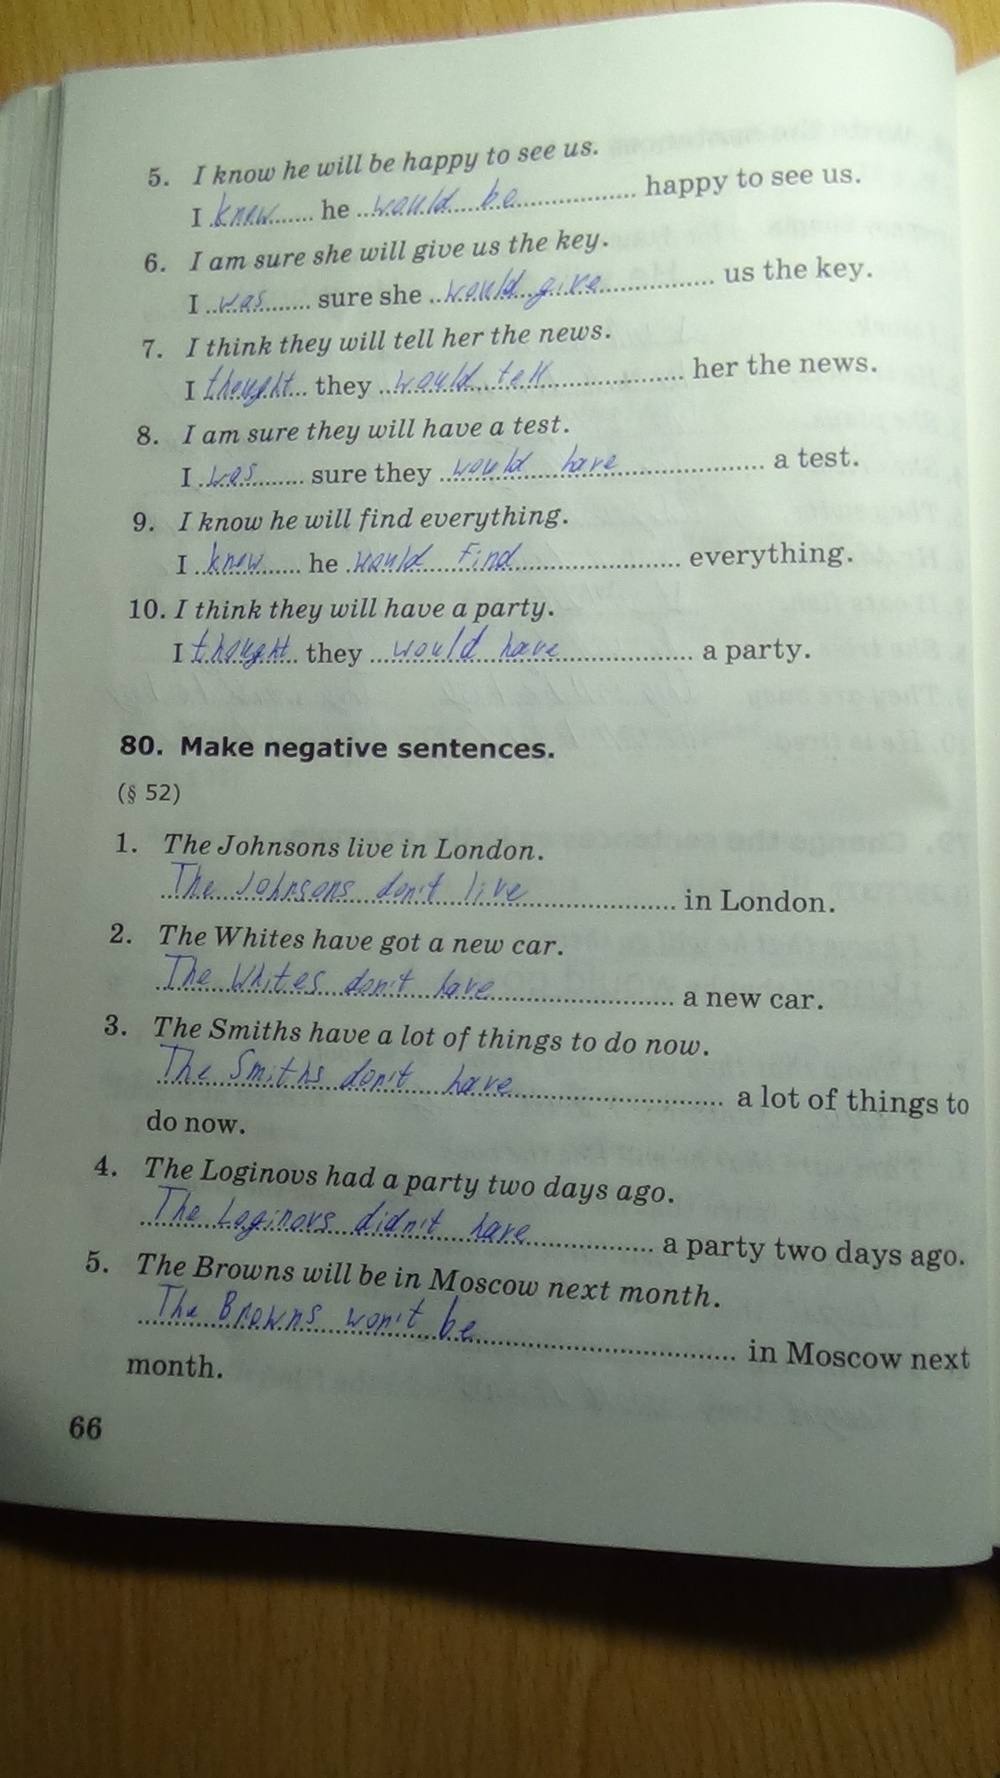 5. I know he will be happy to see us.
I knew he would be happy to see us.
6. I am sure she will give us the key.
I was sure she would give us the key.
7. I think they will tell her the news.
I thought they would tell her the news.
8. I am sure they will have a test.
I was sure they would have a test.
9. I know he will find everything.
I knew he would find everything.
10. I think they will have a party.
I thought they would have a party.
80. Make negative sentences.
(§ 52)
1. The Johnsons live in London.
The Johnsons don't live in London.
2. The Whites have got a new car.
The Whites don't have a new car.
3. The Smiths have a lot of things to do now.
The Smiths don't have a lot of things to
do now.
4. The Loginovs had a party two days ago.
The Loginovs didn't have a party two days ago.
5. The Browns will be in Moscow next month.
The Browns won't be in Moscow next
month.
66